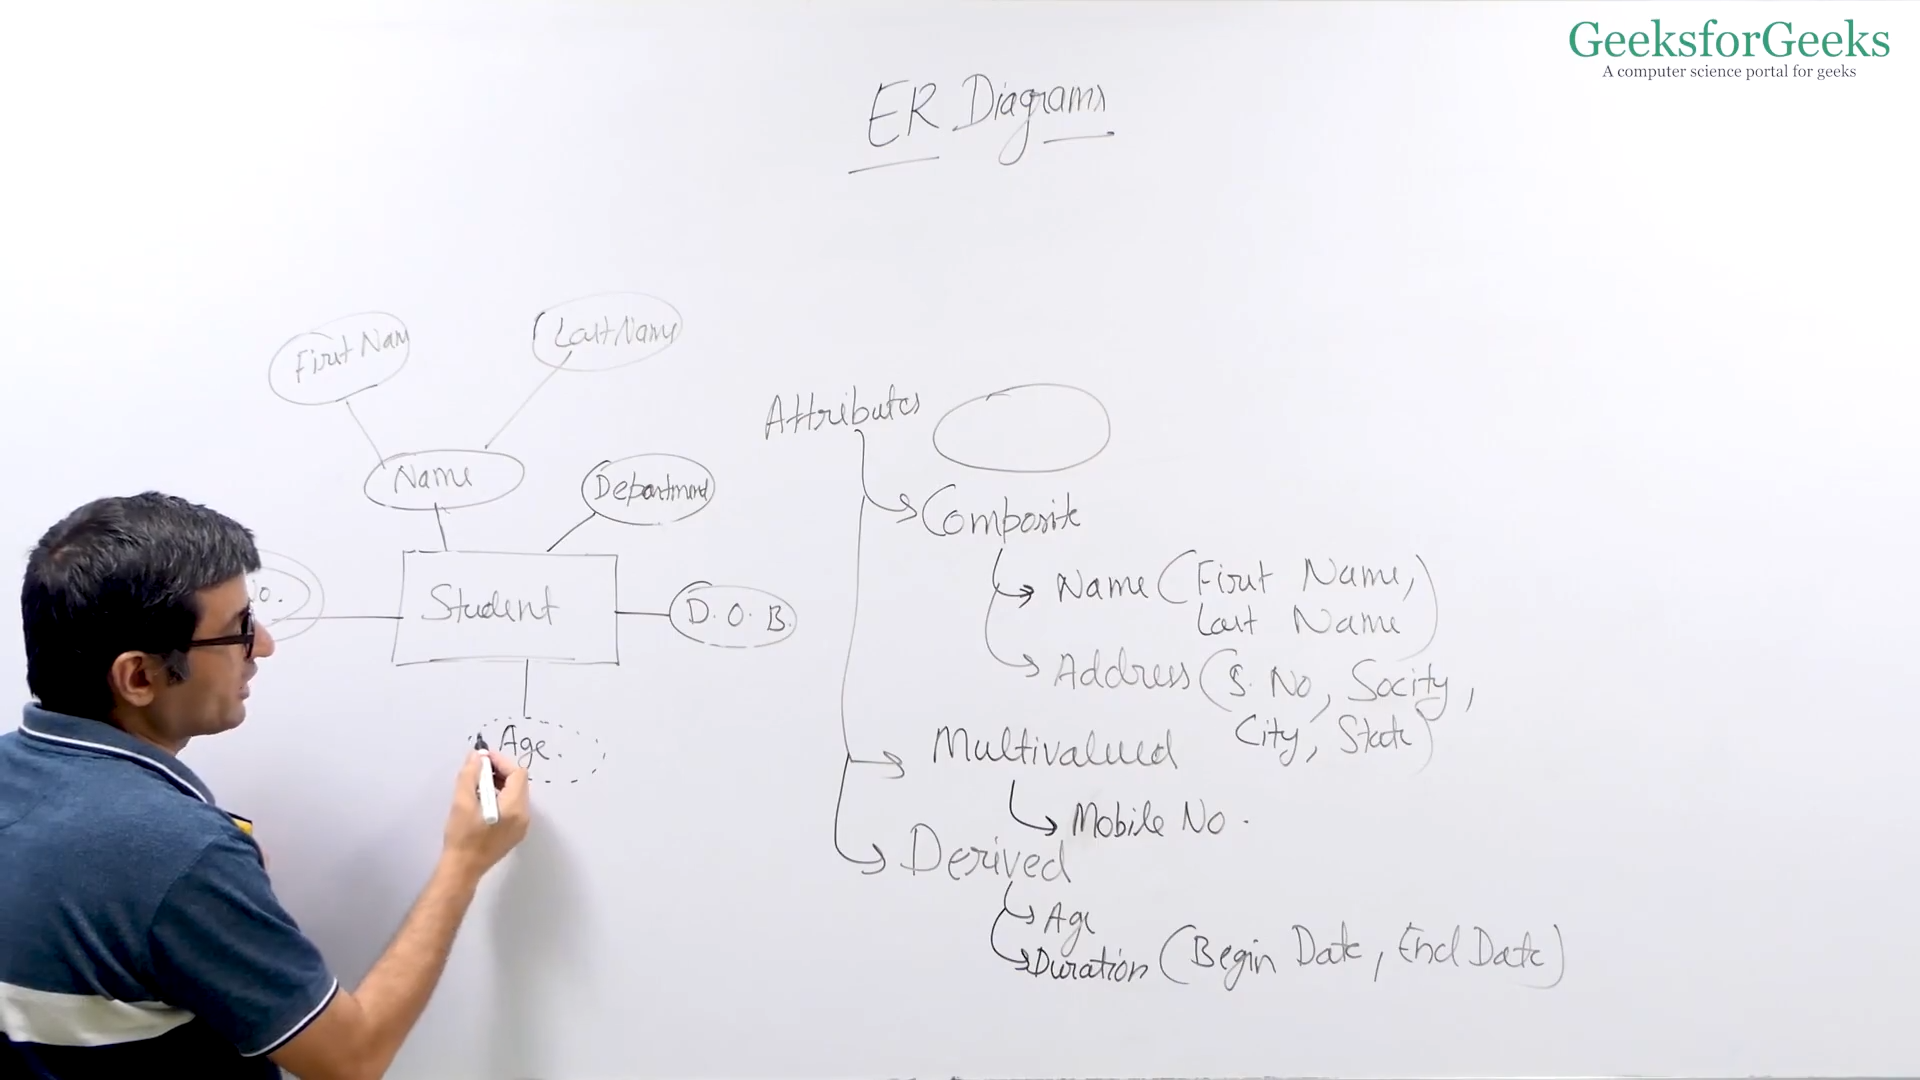 GeeksforGeeks
A computer science portal for geeks
ER Diagrams
First Nam
Last Name
Name
Department
No.
Student
D.O.B.
Age
Attributes
Composite
Name (First Name,
Last Name)
Address (S. No, Socity,
City, State)
Multivalued
Mobile No.
Derived
Age
Duration (Begin Date, End Date)